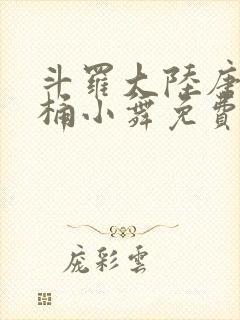 斗羅大陸唐
桶小舞免費
庞彩雲